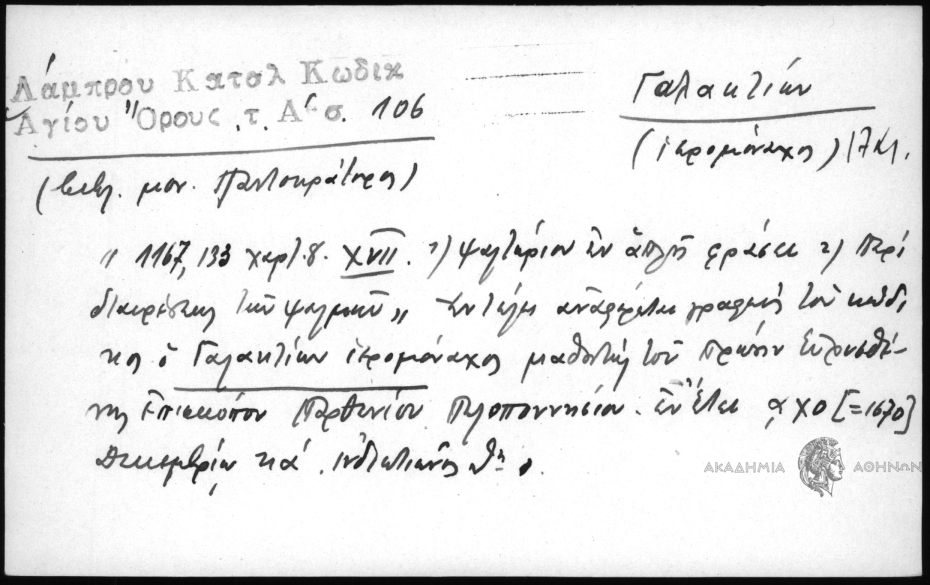 Λάμπρου Κατσλ Κωδικ
Ἁγίου Ὄρους τ. Α΄ σ. 106
Γαλακτίων
(ἱερομόναχος) 17 αἰ.
(βιβλ. μον. Παντοκράτορος)
" 1167, 133 χαρτ. 8. XVII. 1) Ψαλτήριον ἐν ἁπλῇ φράσει 2) Περὶ
διαιρέσεως τῶν ψαλμῶν " Ἐν τέλει ἀναφέρεται γραφεὺς τοῦ κώδι
κος ὁ Γαλακτίων ἱερομόναχος μαθητὴς τοῦ πρώην
Ἐπισκόπου Παρθενίου Πελοποννησίου. ἐν ἔτει ͵αχο [=1670]
Δεκεμβρίῳ κά ἰνδικτιῶνος θῃ.
ΑΚΑΔΗΜΙΑ ΑΘΗΝΩΝ